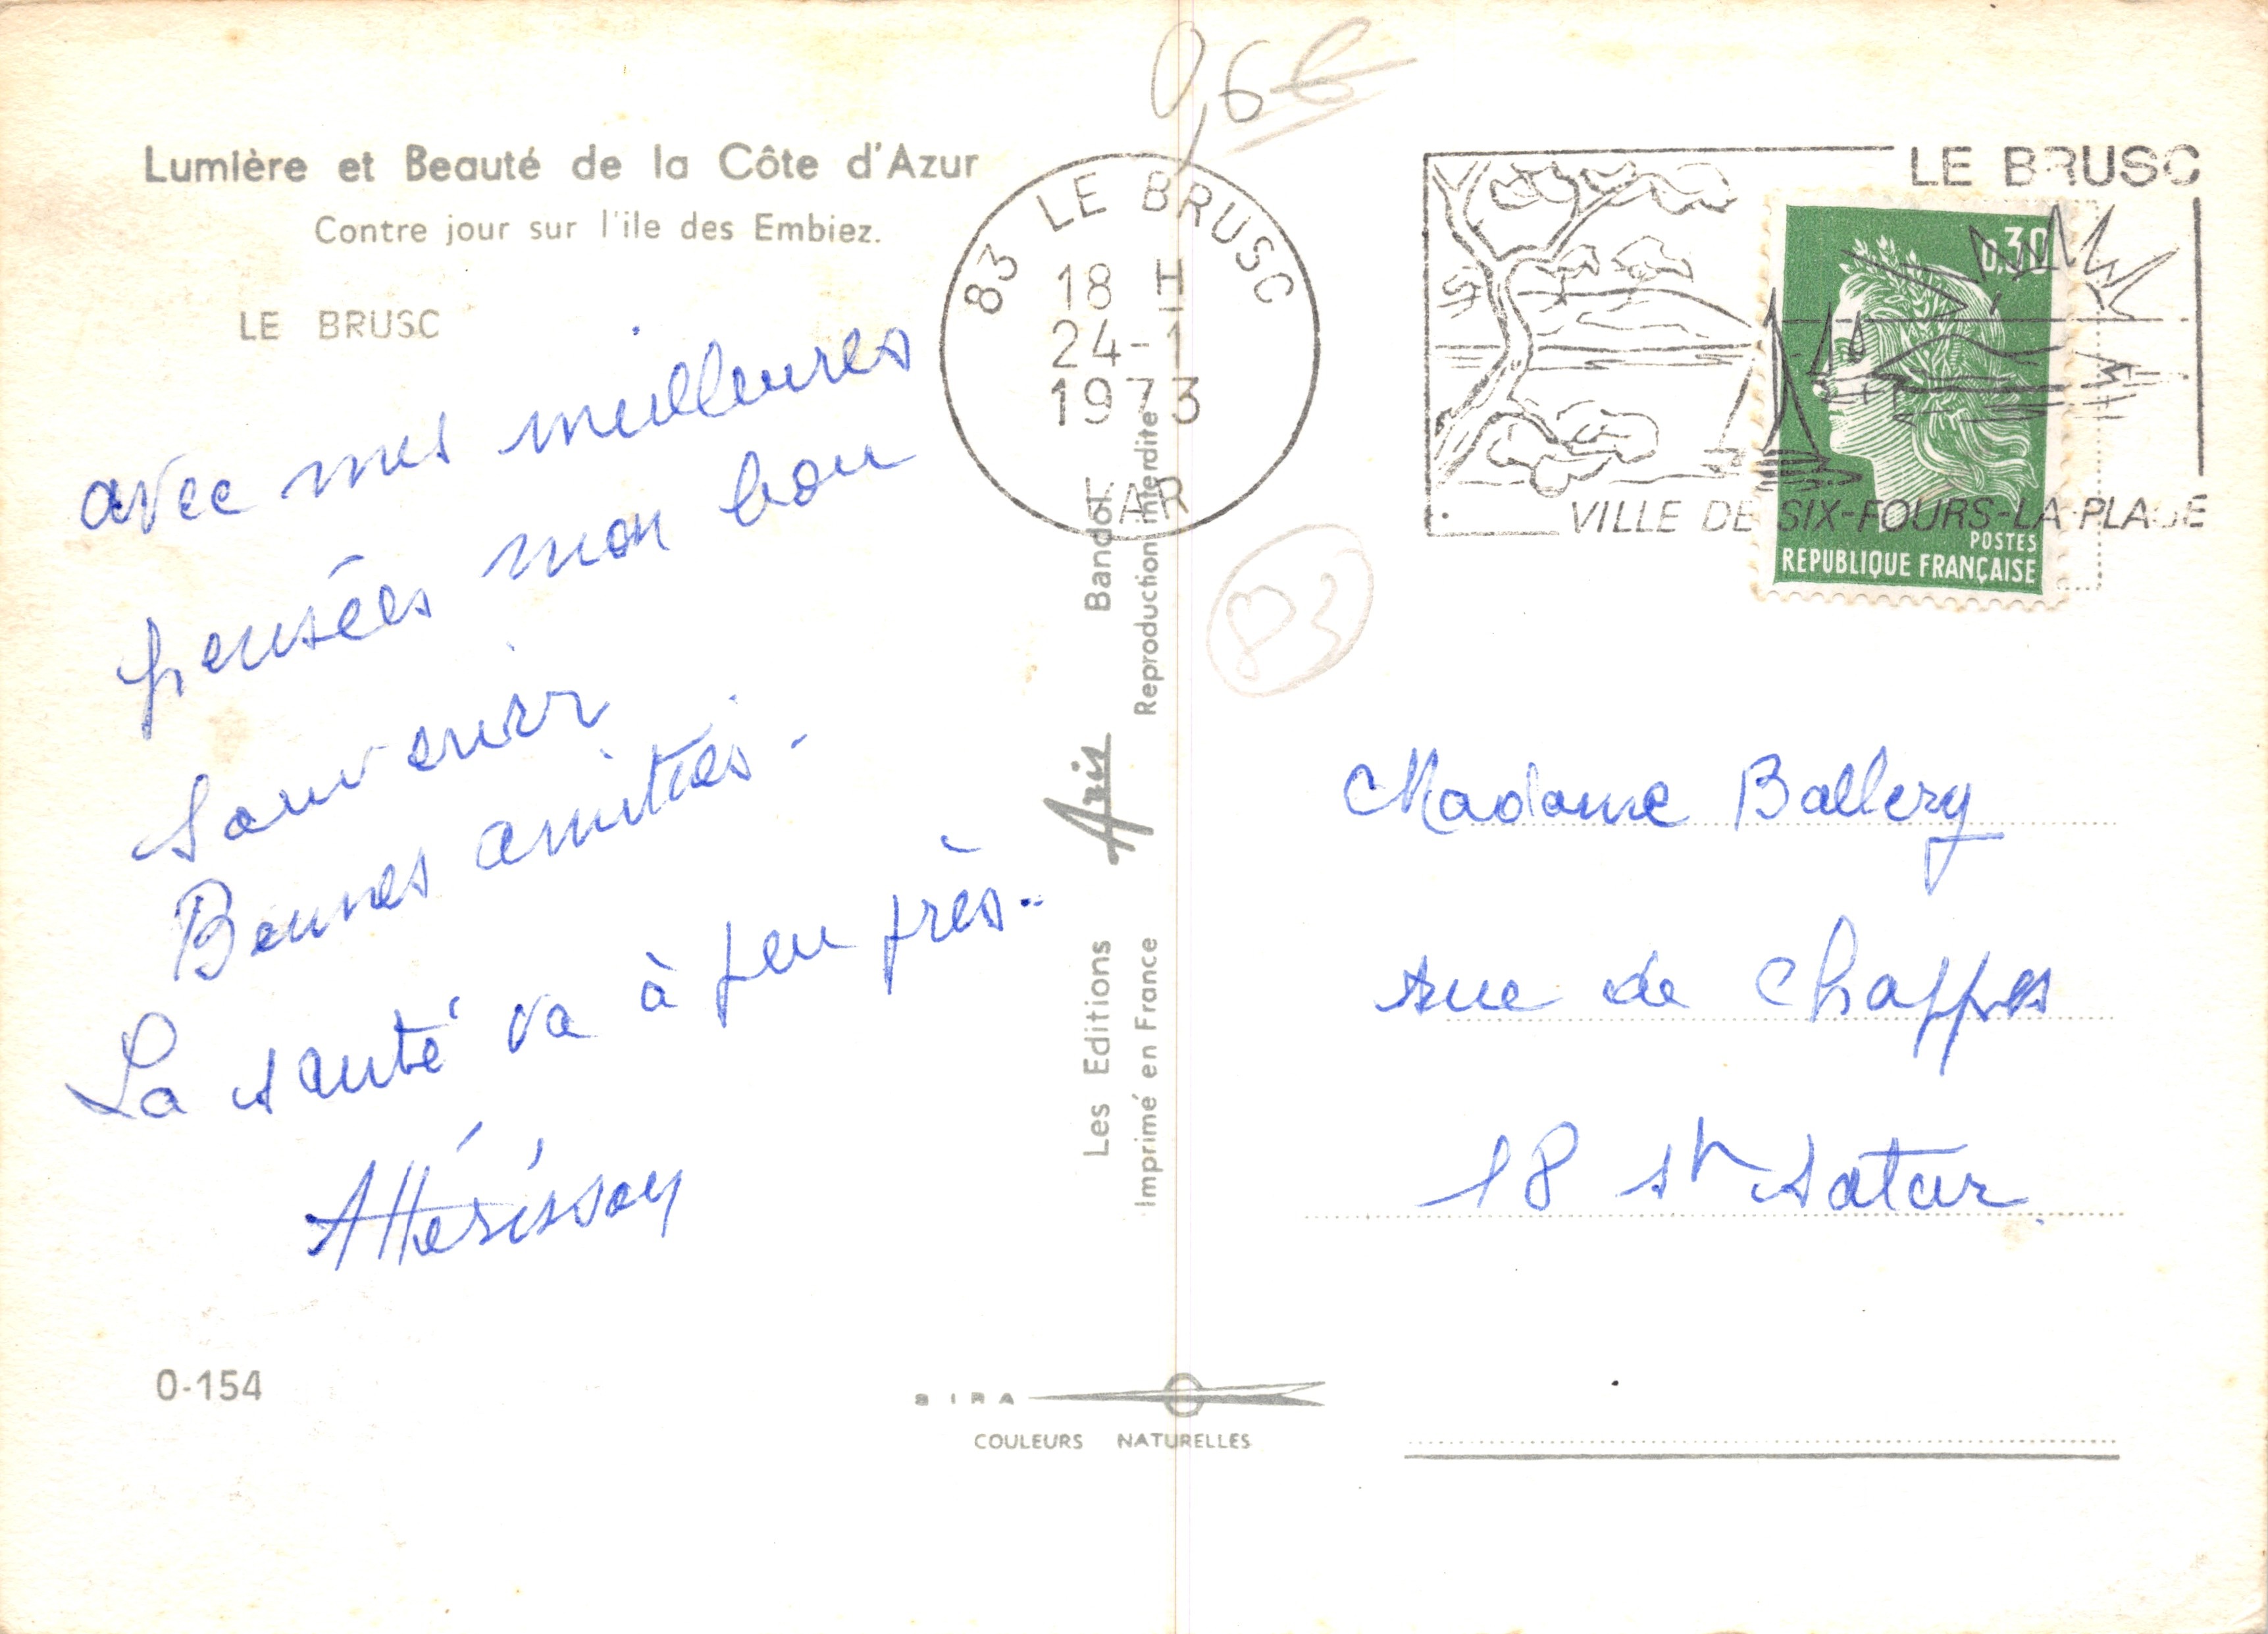 0,6€
Lumière et Beauté de la Côte d'Azur
Contre jour sur l'ile des Embiez.
LE BRUSC
avec mes meilleures
pensées mon bon
souvenir
Bonnes amitiés -
La santé va à peu près..
0-154
83 LE BRUSC
18 H
24-1
1973
VAR
Les Editions Aris Bandol
Imprimé en France Reproduction interdite
83
SIRA
COULEURS NATURELLES
LE BRUSC
VILLE DE SIX-FOURS-LA-PLAGE
0,30
POSTES
REPUBLIQUE FRANÇAISE
Madame Ballery
rue de Chappes
18 St Satur